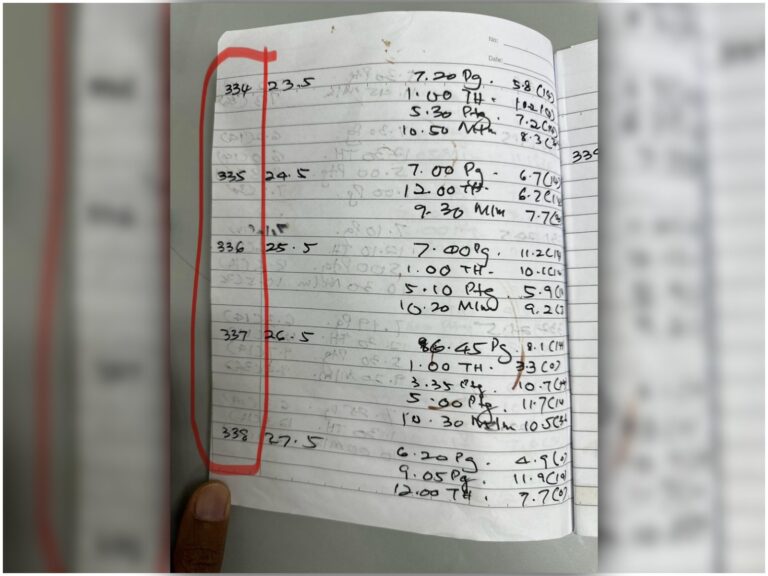 No:
Date:
334 23.5 7.20 Pg. 5.8 (14)
1.00 TH.
5.30 Ptg 7.2
10.50 Mlm 8.3
335 24.5 7.00 Pg - 6.7
12.00 TH. 6.2
9.30 Mlm 7.7
336 25.5 7.00 Pg. 11.2
1.00 TH. 10.1
5.10 Ptg. 5.9
10.20 Mlm 9.2
337 26.5 6.45 Pg. 8.1
1.00 TH. 3.3 (0)
3.35 Ptg. 10.7
5.00 Ptg. 11.7
10.30 Mlm 10.5
338 27.5 6.20 Pg. 4.9 (0)
9.05 Pg. 11.9
12.00 TH. 7.7 (0)
339